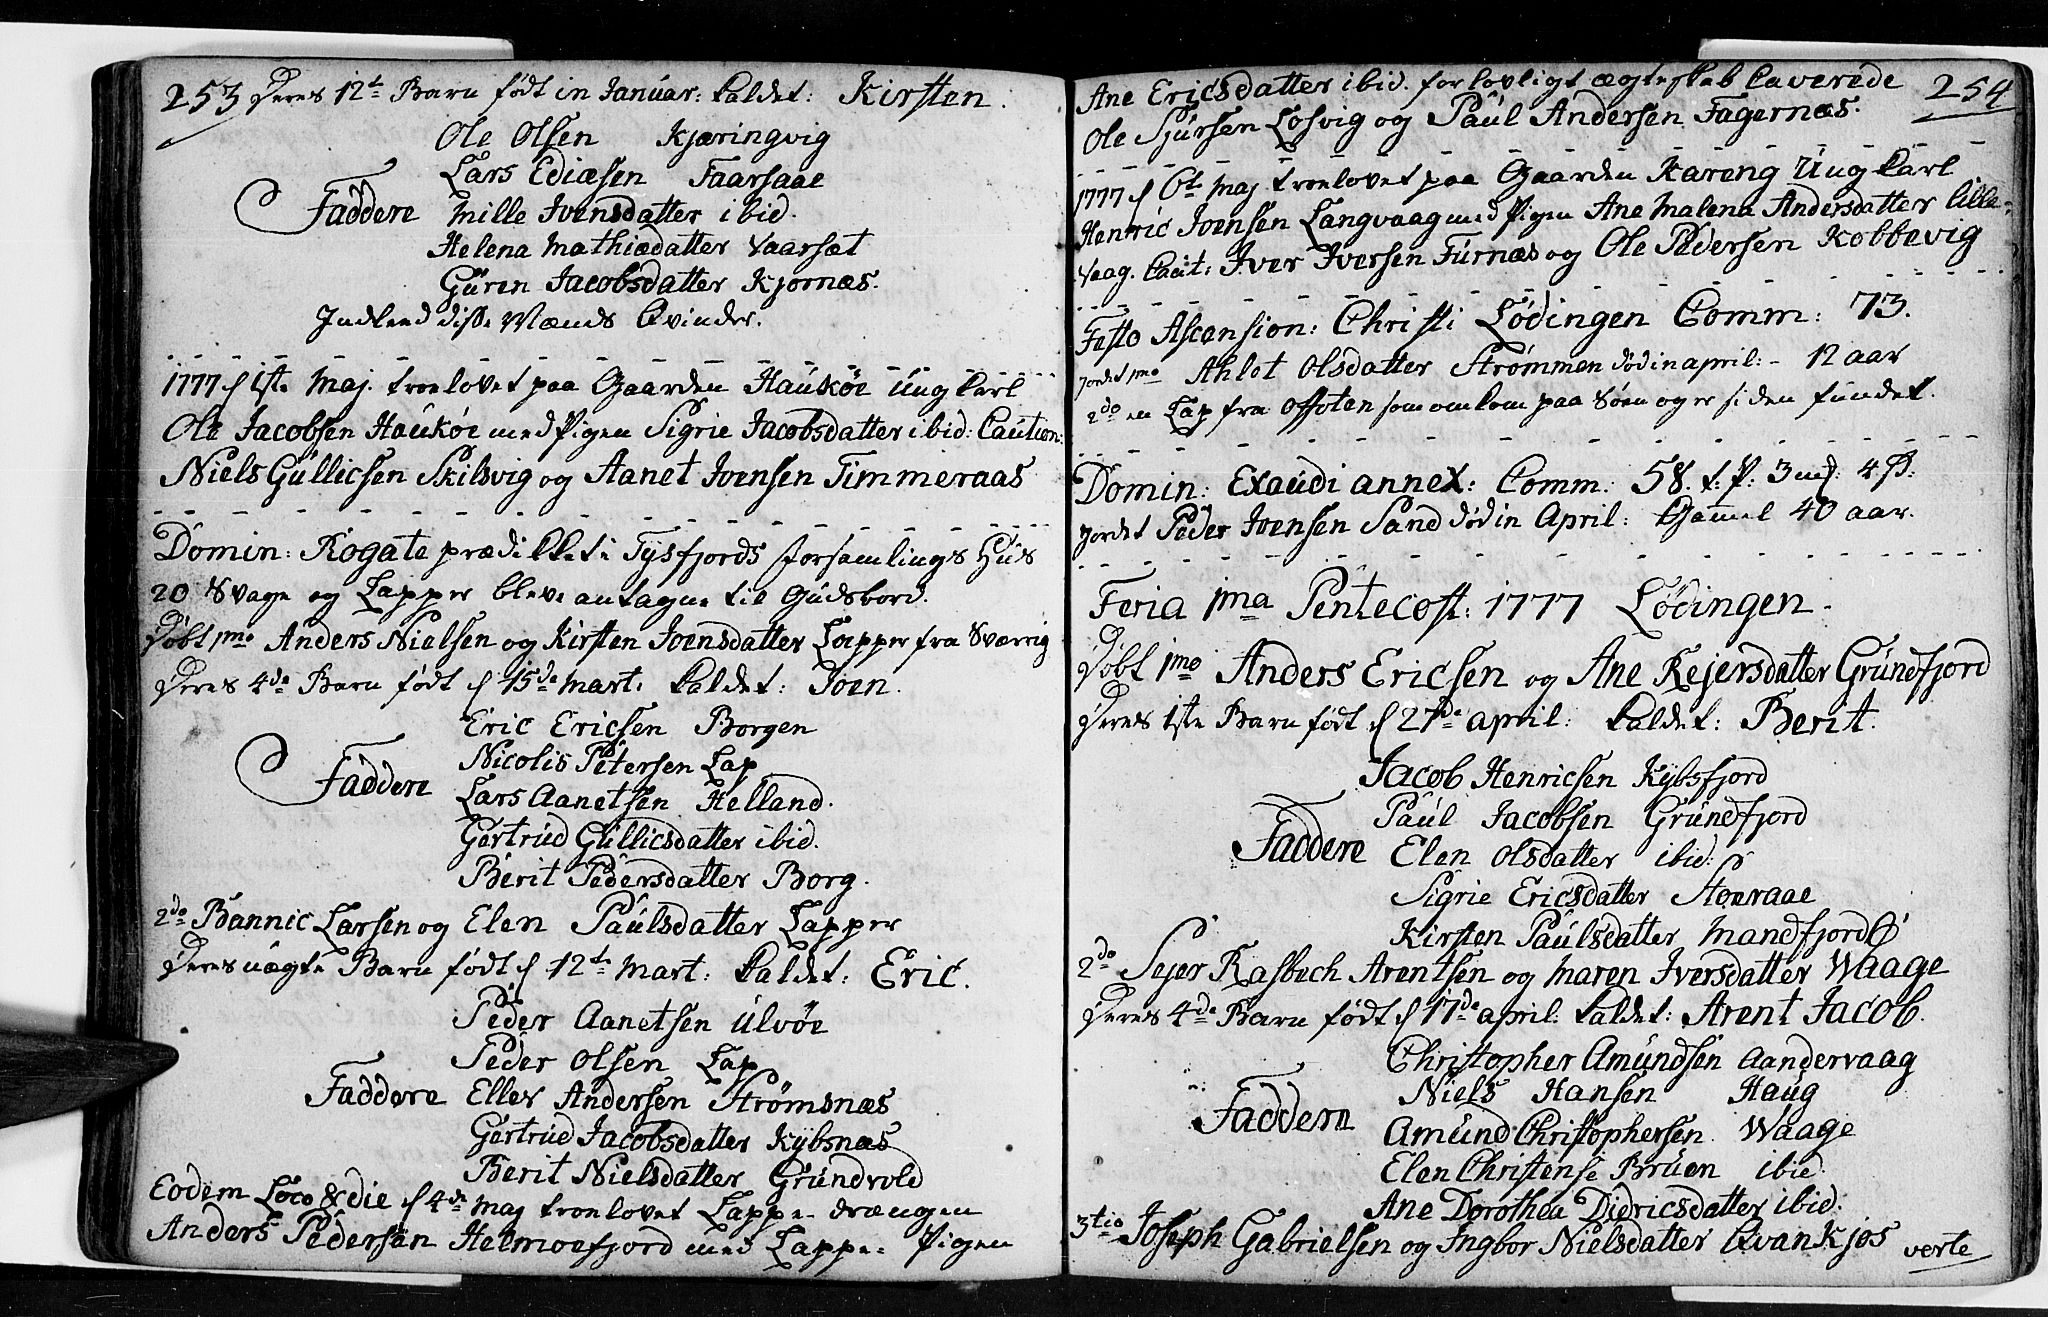 253 Deres 12te Barn født in Januar: kaldet: Kirsten.
Ole Olsen Kjæringvig
Lars Ediæsen Faarsaae
Faddere Mille Ivensdatter ibid.
Helena Mathiædatter Vaarsæt
Guren Jacobsdatter Kjornæs.
Indleed disse Mænds Qvinder.
1777 d 1ste Maj. troelovet paa Gaarden Haukøe Ung Karl
Ole Jacobsen Haukøe med Pigen Sigrie Jacobsdatter ibid: Caution:
Niels Gullicsen Skilsvig og Aanet Joensen Timmeraas
Domin: Rogate prædikket i Tysfjords forsamlings Huus
20 Svage og Lapper bleve antagne til Gudsbord.
Døbt 1mo Anders Nielsen og Kirsten Joensdatter Lapper fra Sværrig
Deres 4de Barn født d 15de Mart: kaldet: Joen.
Eric Ericsen Borgen
Nicolis Petersen Lap
Faddere Lars Aanetsen Helland.
Gertrud Gullicsdatter ibid.
Berit Pedersdatter Borg.
2do Bannic Larsen og Elen Paulsdatter Lapper
Deres uægte Barn født d 12te Mart: kaldet: Eric.
Peder Aanetsen Ulvøe
Peder Olsen Lap
Faddere Eller Andersen Strømsnæs
Gertrud Jacobsdatter Kybsnæs
Berit Nielsdatter Grundvold
Eodem Loco & die d 4de Maj troelovet Lappe-drængen
Anders Pedersen Helmoefjord med Lappe-Pigen
Ane Ericsdatter ibid. for lovligt ægteskab Caverede 254
Ole Sjursen Losvig og Paul Andersen Fagernæs.
1777 d 6te Maj troelovet paa Gaarden Kareng Ung Karl
Henric Joensen Langvaag med Pigen Ane Malena Andersdatter lille-
Vaag. Caut: Iver Iversen Furnæs og Ole Pedersen Kobbevig
Festo Ascension: Christi Lødingen Comm: 73.
Jordet 1mo Ahlot Olsdatter Strømmen død in april: - 12 aar
2do en Lap fra Offoten som omkom paa Søen og er siden fundet.
Domin: Exaudi annex: Comm: 58. t: P: 3 4 ẞ:
Jordet Peder Joensen Sand død in April: Gamel 40 aar.
Feria 1ma Pentecost: 1777 Lødingen.
Døbt 1mo Anders Ericsen og Ane Rejersdatter Grundfjord
Deres 1ste Barn født d 27de april: kaldet: Berit.
Jacob Henricsen Kybsfjord
Paul Jacobsen Grundfjord
Faddere Elen Olsdatter ibid:
Sigrie Ericsdatter Stoeraae
Kirsten Paulsdatter Mandfjord
2do Sejer Rasbech Arentsen og Maren Iversdatter Waage
Deres 4de Barn født d 17de april: kaldet: Arent Jacob.
Christopher Amundsen Aandervaag
Niels Hansen Haug
Faddere Amund Christophersen Waage
Elen Christense Bruun ibid.
Ane Dorothea Didricsdatter ibid:
3tio Joseph Gabrielsen og Ingbor Nielsdatter Qvankjos verte